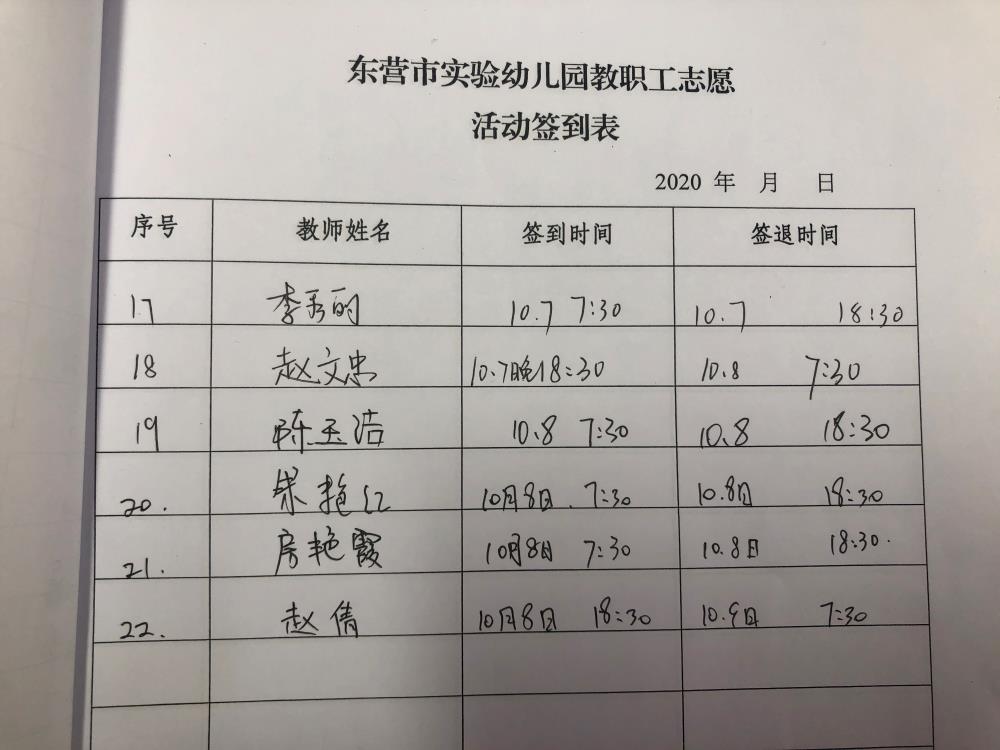 东营市实验幼儿园教职工志愿
活动签到表
2020 年 月 日
序号 教师姓名 签到时间 签退时间
17 李秀的 10.7 7:30 10.7 18:30
18 赵文忠 10.7晚18:30 10.8 7:30
19 陈玉洁 10.8 7:30 10.8 18:30
20. 艳红 10月8日. 7:30 10.8日 18:30
21. 房艳霞 10月8日 7:30 10.8日 18:30.
22. 赵倩 10月8日 18:30 10.9日 7:30